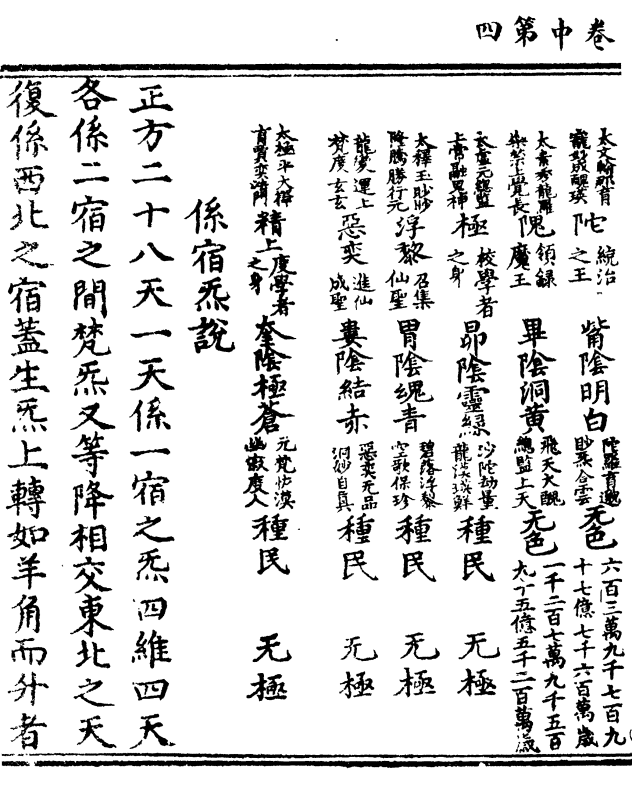 卷中第四
太文綺邪育
寵發醜琰
陀
統治
之王
觜陰明白
陀羅育邈
眇炁合雲
无色
六百三萬九千七百九
十七億七千六百萬歲
太素秀龍羅
覺長
隗
領錄
魔王
畢陰洞黄
飛天大醜
總監上天
无色
一千二百七萬九千五百
九十五億五千二百萬歲
太虛元總監
上帝融
極
校學者
之身
昴陰靈綠
沙陀劫量
龍漢瑛鮮
種民
无極
太釋玉眇眇
降騰勝行元
浮黎
召集
仙聖
胃陰魂青
碧落浮黎
空歌保珍
種民
无極
龍變運上
梵度玄玄
惡奕
進仙
成聖
婁陰結赤
惡奕无品
洞妙自真
種民
无極
太極平大釋
育賈奕
精上
度學者
之身
奎陰極蒼
元梵恢漠
幽寂度人
種民
无極
係宿炁說
正方二十八天一天係一宿之炁四維四天
各係二宿之間梵炁又等降相交東北之天
復係西北之宿蓋生炁上轉如羊角而升者